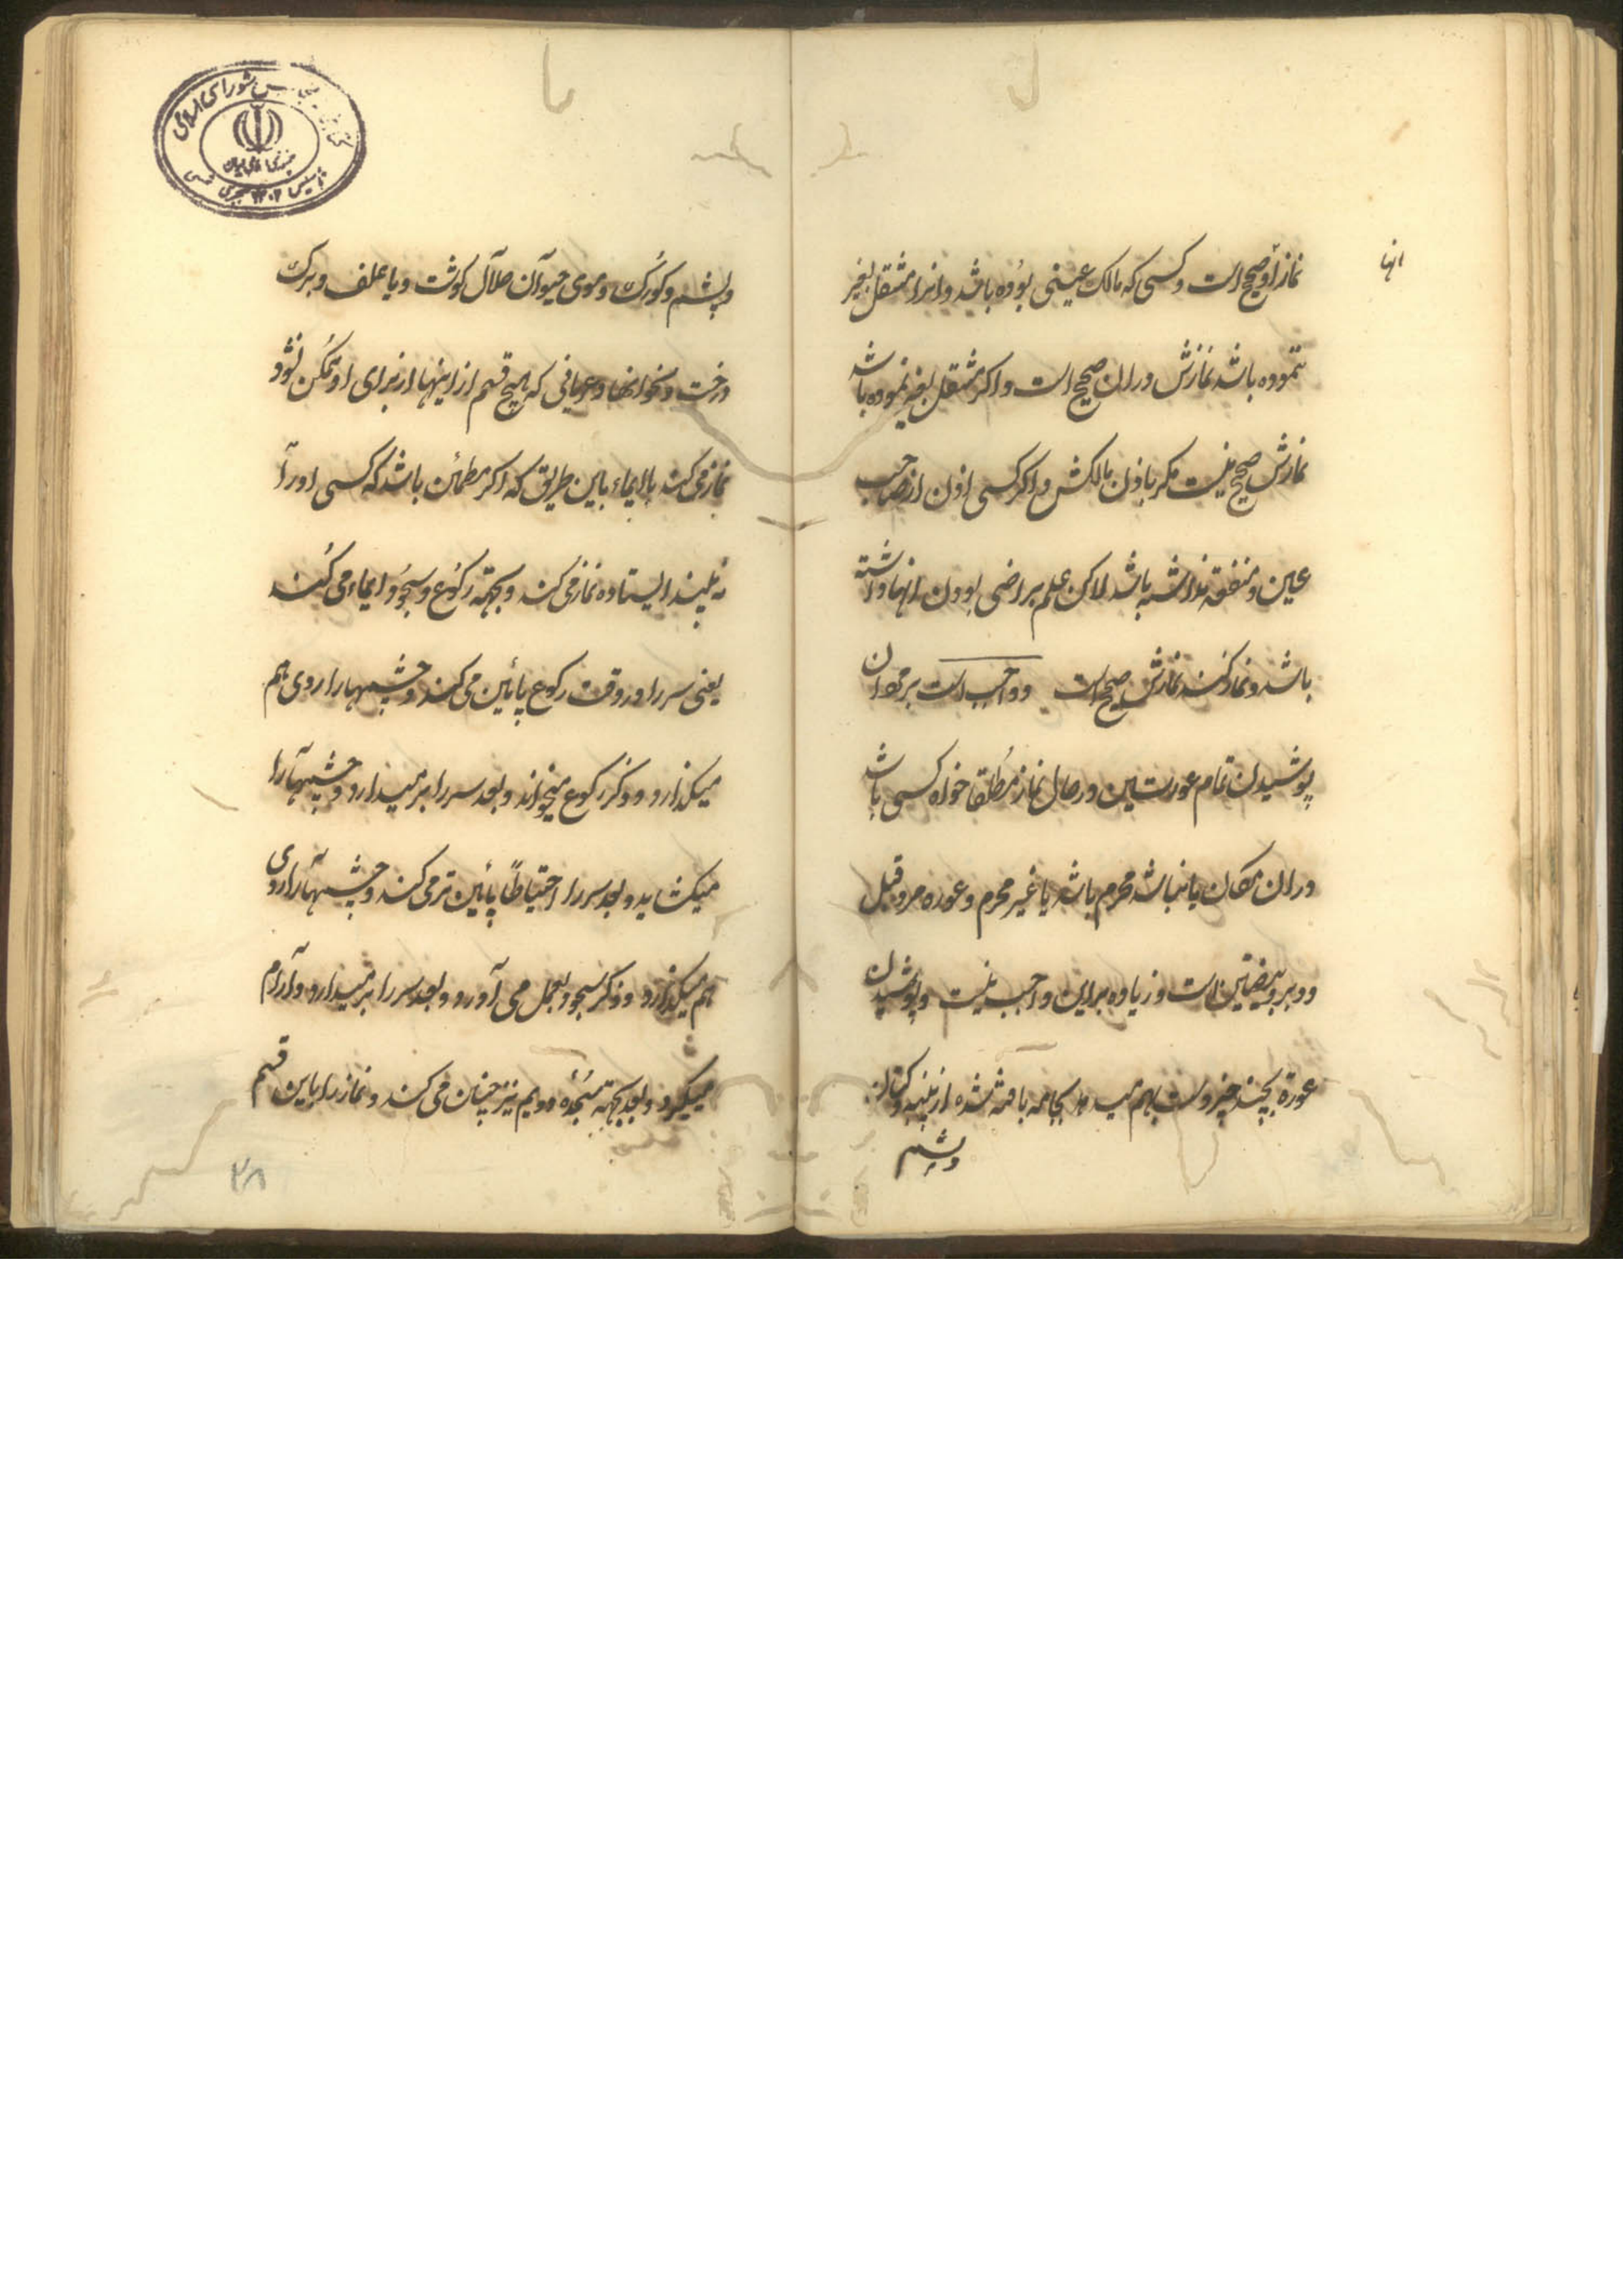 انها
نماز او صحیح است و کسی که مالک عینی بوده باشد و انرا منتقل بغیر
ننموده باشد نمازش در ان صحیح است و اکر منتقل بغیر نموده باشد
نمازش صحیح نیست مکر باذن مالکش و اکر کسی اذن از صاحب
عین و منفعة نداشته باشد لاکن علم براضی بودن انها داشته
باشد و نماز کند نمازش صحیح است و واجب است بر مردان
پوشیدن تمام عورتین در حال نماز مطلقا خواه کسی باشد
در ان مکان یا نباشد محرم باشد یا غیر محرم و عورة مرد قبل
و دبر و بیضتین است و زیاده بر این واجب نیست و پوشیدن
عورة بچند چیز دست بهم میدهد بجامه بافته شده از پنبه و کتان
و پشم
و پشم و کورک و موی حیوان حلال کوشت و یا علف و برک
درخت و نحو انها و عریانی که هیچ قسم از اینها از برای او ممکن نشود
نماز می کند با ایماء باین طریق که اکر مطمئن باشد که کسی او را
نه بیند ایستاده نماز می کند و بجهته رکوع و سجود ایماء می کند
یعنی سر را در وقت رکوع پائین می کند و چشمها را روی هم
میکذارد و ذکر رکوع میخواند و بعد سر را بر میدارد و چشمها را
میکشاید و بعد سر را احتیاطاً پائین تر می کند و چشمها را روی
هم میکذارد و ذکر سجود بعمل می آورد و بعد سر را بر میدارد و آرام
میکیرد و بعد بجهته سجده دویم نیز چنان می کند و نماز را باین قسم
۲۸
مجلس شورای اسلامی
جمهوری اسلامی ایران
تاسیس ۱۳۰۲ هجری شمسی